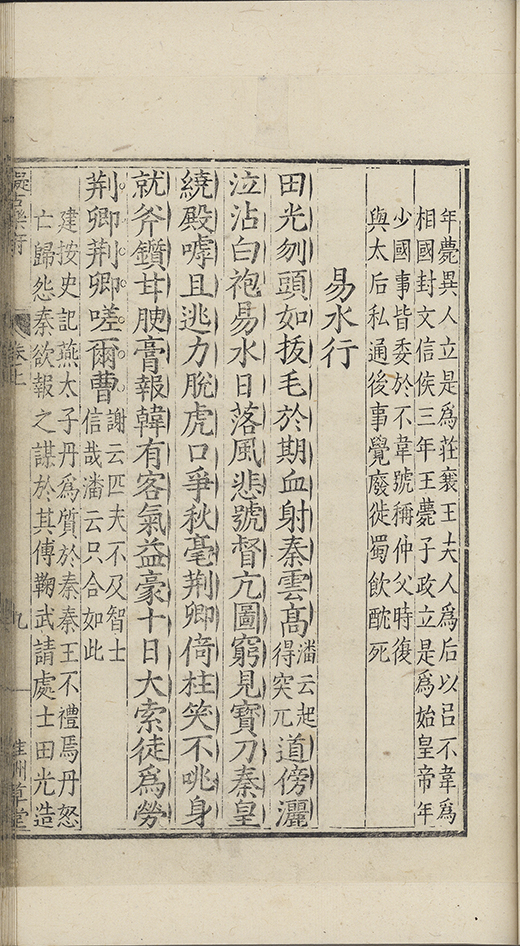 年薨異人立是爲莊襄王夫人爲后以呂不韋爲
相國封文信侯三年王薨子政立是爲始皇帝年
少國事皆委於不韋號稱仲父時復
與太后私通後事覺廢徙蜀飲酖死
易水行
田光刎頭如拔毛於期血射秦雲髙潘云起
得突兀道傍灑
泣沾白袍易水日落風悲號督亢圖窮見寶刀秦皇
繞殿嘑且逃力脫虎口爭秋毫荆卿倚柱笑不咷身
就斧鑕甘腴膏報韓有客氣益豪十日大索徒爲勞
荆卿荆卿嗟爾曹謝云匹夫不及智士
信哉潘云只合如此
建按史記燕太子丹爲質於秦秦王不禮焉丹怒
亡歸怨秦欲報之謀於其傅鞠武請處士田光造
擬古樂府
卷上
九
草堂